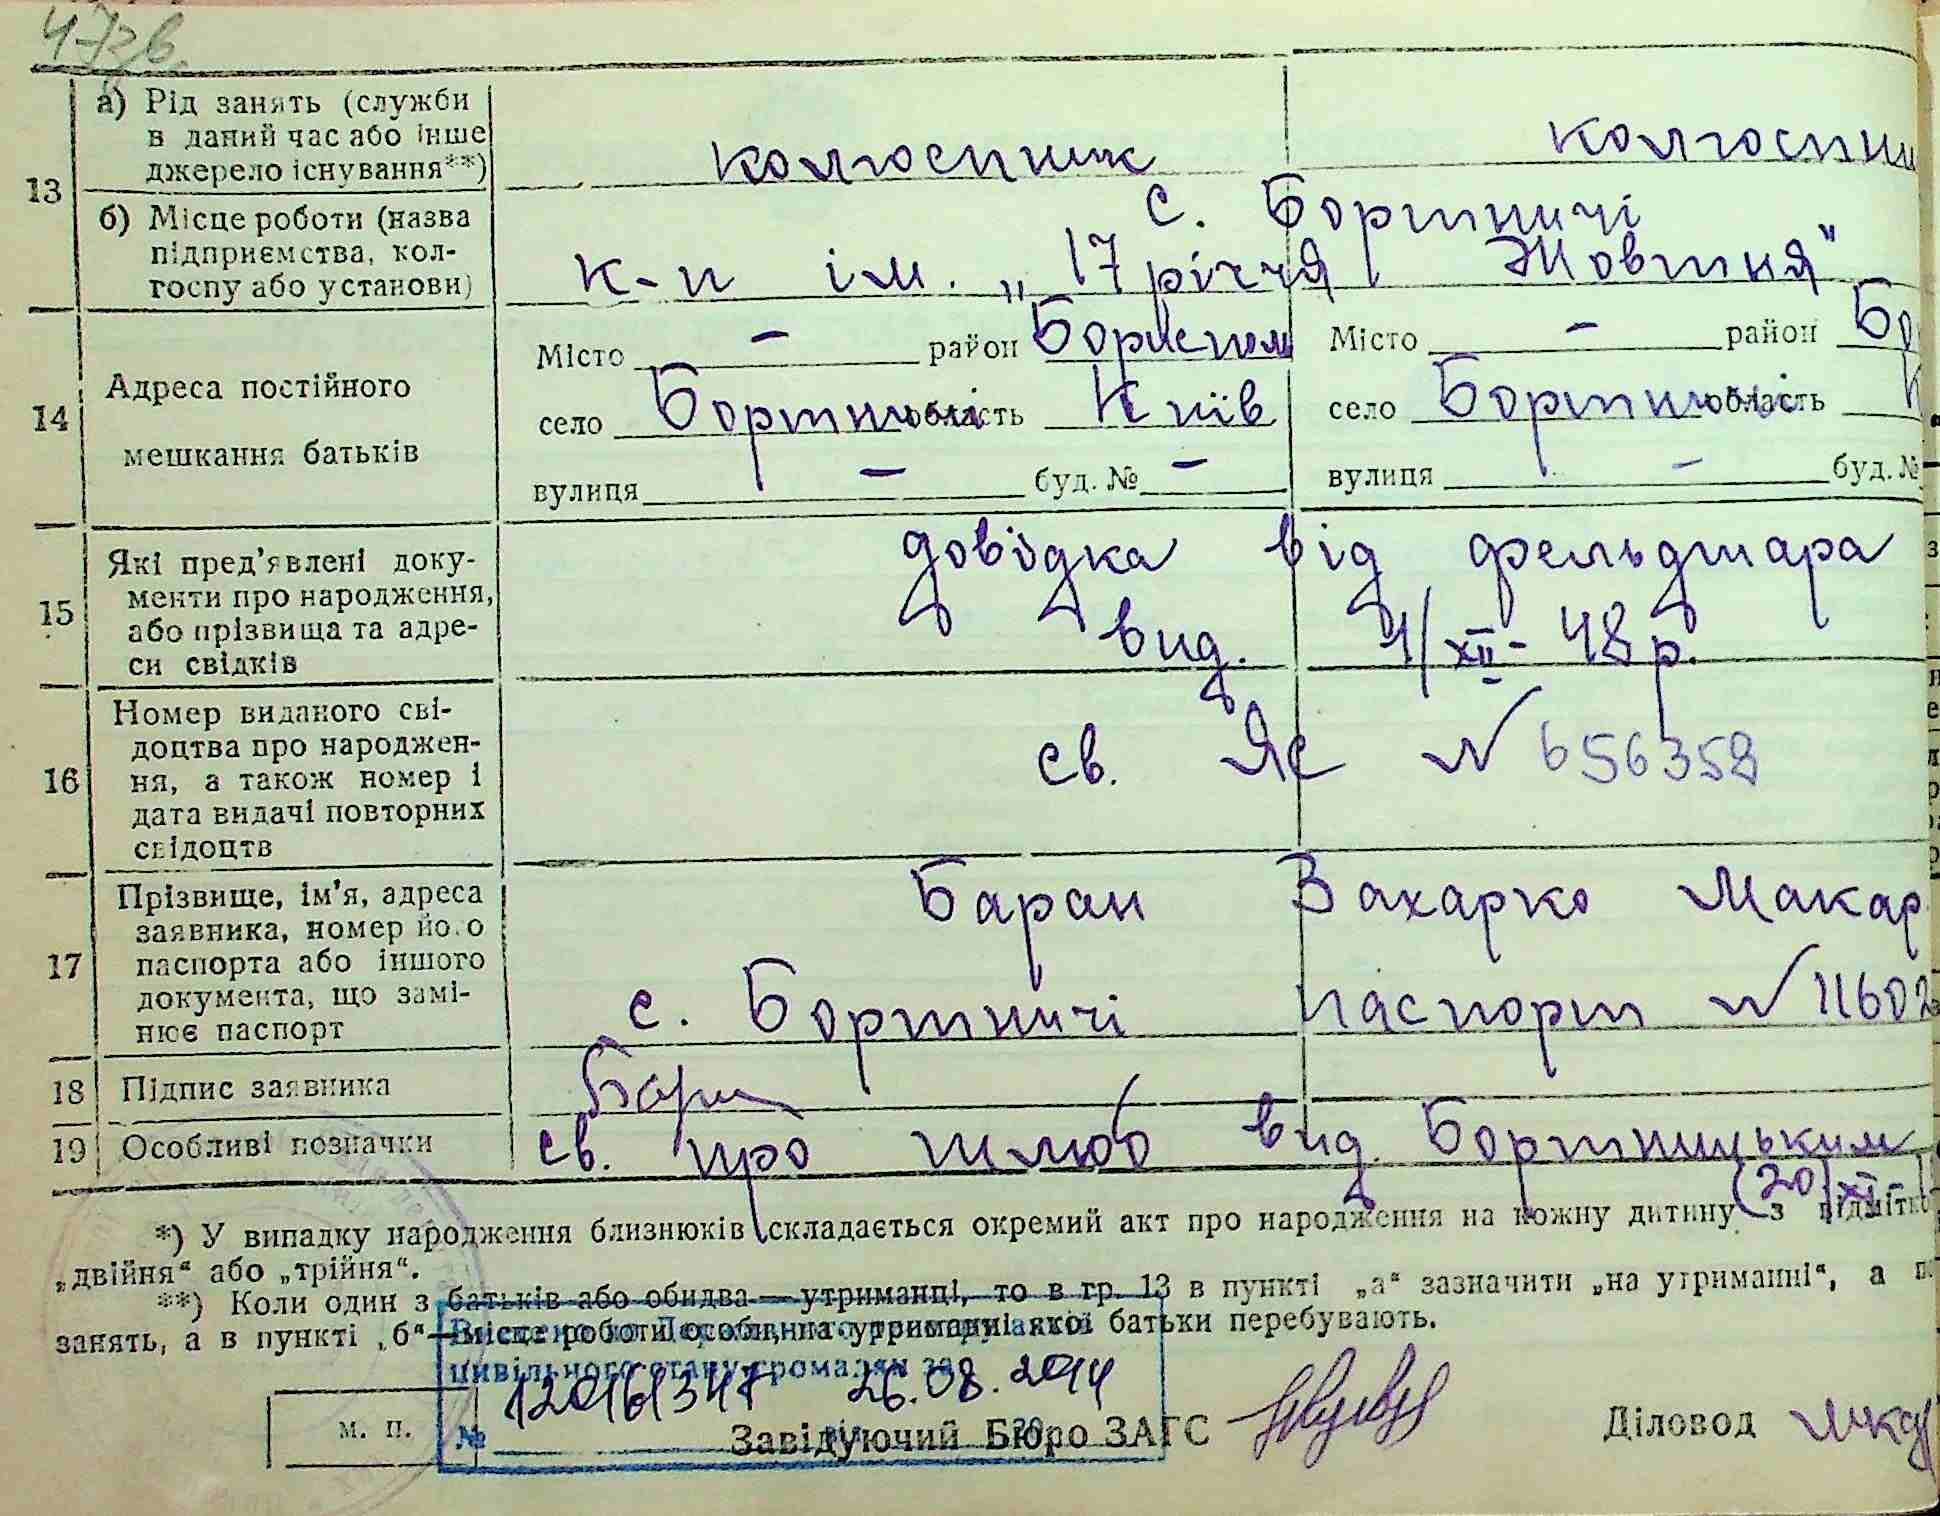 473в.
13
а) Рід занять (служби
в даний час або інше
джерело існування**)
колгоспник
колгоспни
б) Місце роботи (назва
підприємства, кол-
госпу або установи)
с. Бортничі
к-п ім. „17 річчя Жовтня"
14
Адреса постійного
мешкання батьків
Місто - район Борисполь
село Бортничі область Київ
вулиця - буд. № -
Місто - район Бо
село Бортничі область К
вулиця - буд. №
15
Які пред'явлені доку-
менти про народження,
або прізвища та адре-
си свідків
довідка від фельдшара
вид. 4/XII-48 р.
16
Номер виданого сві-
доцтва про народжен-
ня, а також номер і
дата видачі повторних
свідоцтв
св. ЯС № 656358
17
Прізвище, ім'я, адреса
заявника, номер його
паспорта або іншого
документа, що замі-
нює паспорт
Баран Захарко Макар
с. Бортничі паспорт № 11602
18 Підпис заявника
19 Особливі позначки
св. про шлюб вид. Бортницьким
(20/XI-
*) У випадку народження близнюків складається окремий акт про народження на кожну дитину з підмітко
„двійня“ або „трійня“.
**) Коли один з батьків або обидва — утриманці, то в гр. 13 в пункті „а“ зазначити „на утриманні“, а п
занять, а в пункті „б“—місце роботи особи, на утриманні якої батьки перебувають.
цивільного стану громадян за
№ 120161347 26.08.2014
м. п.
Завідуючий Бюро ЗАГС
Діловод